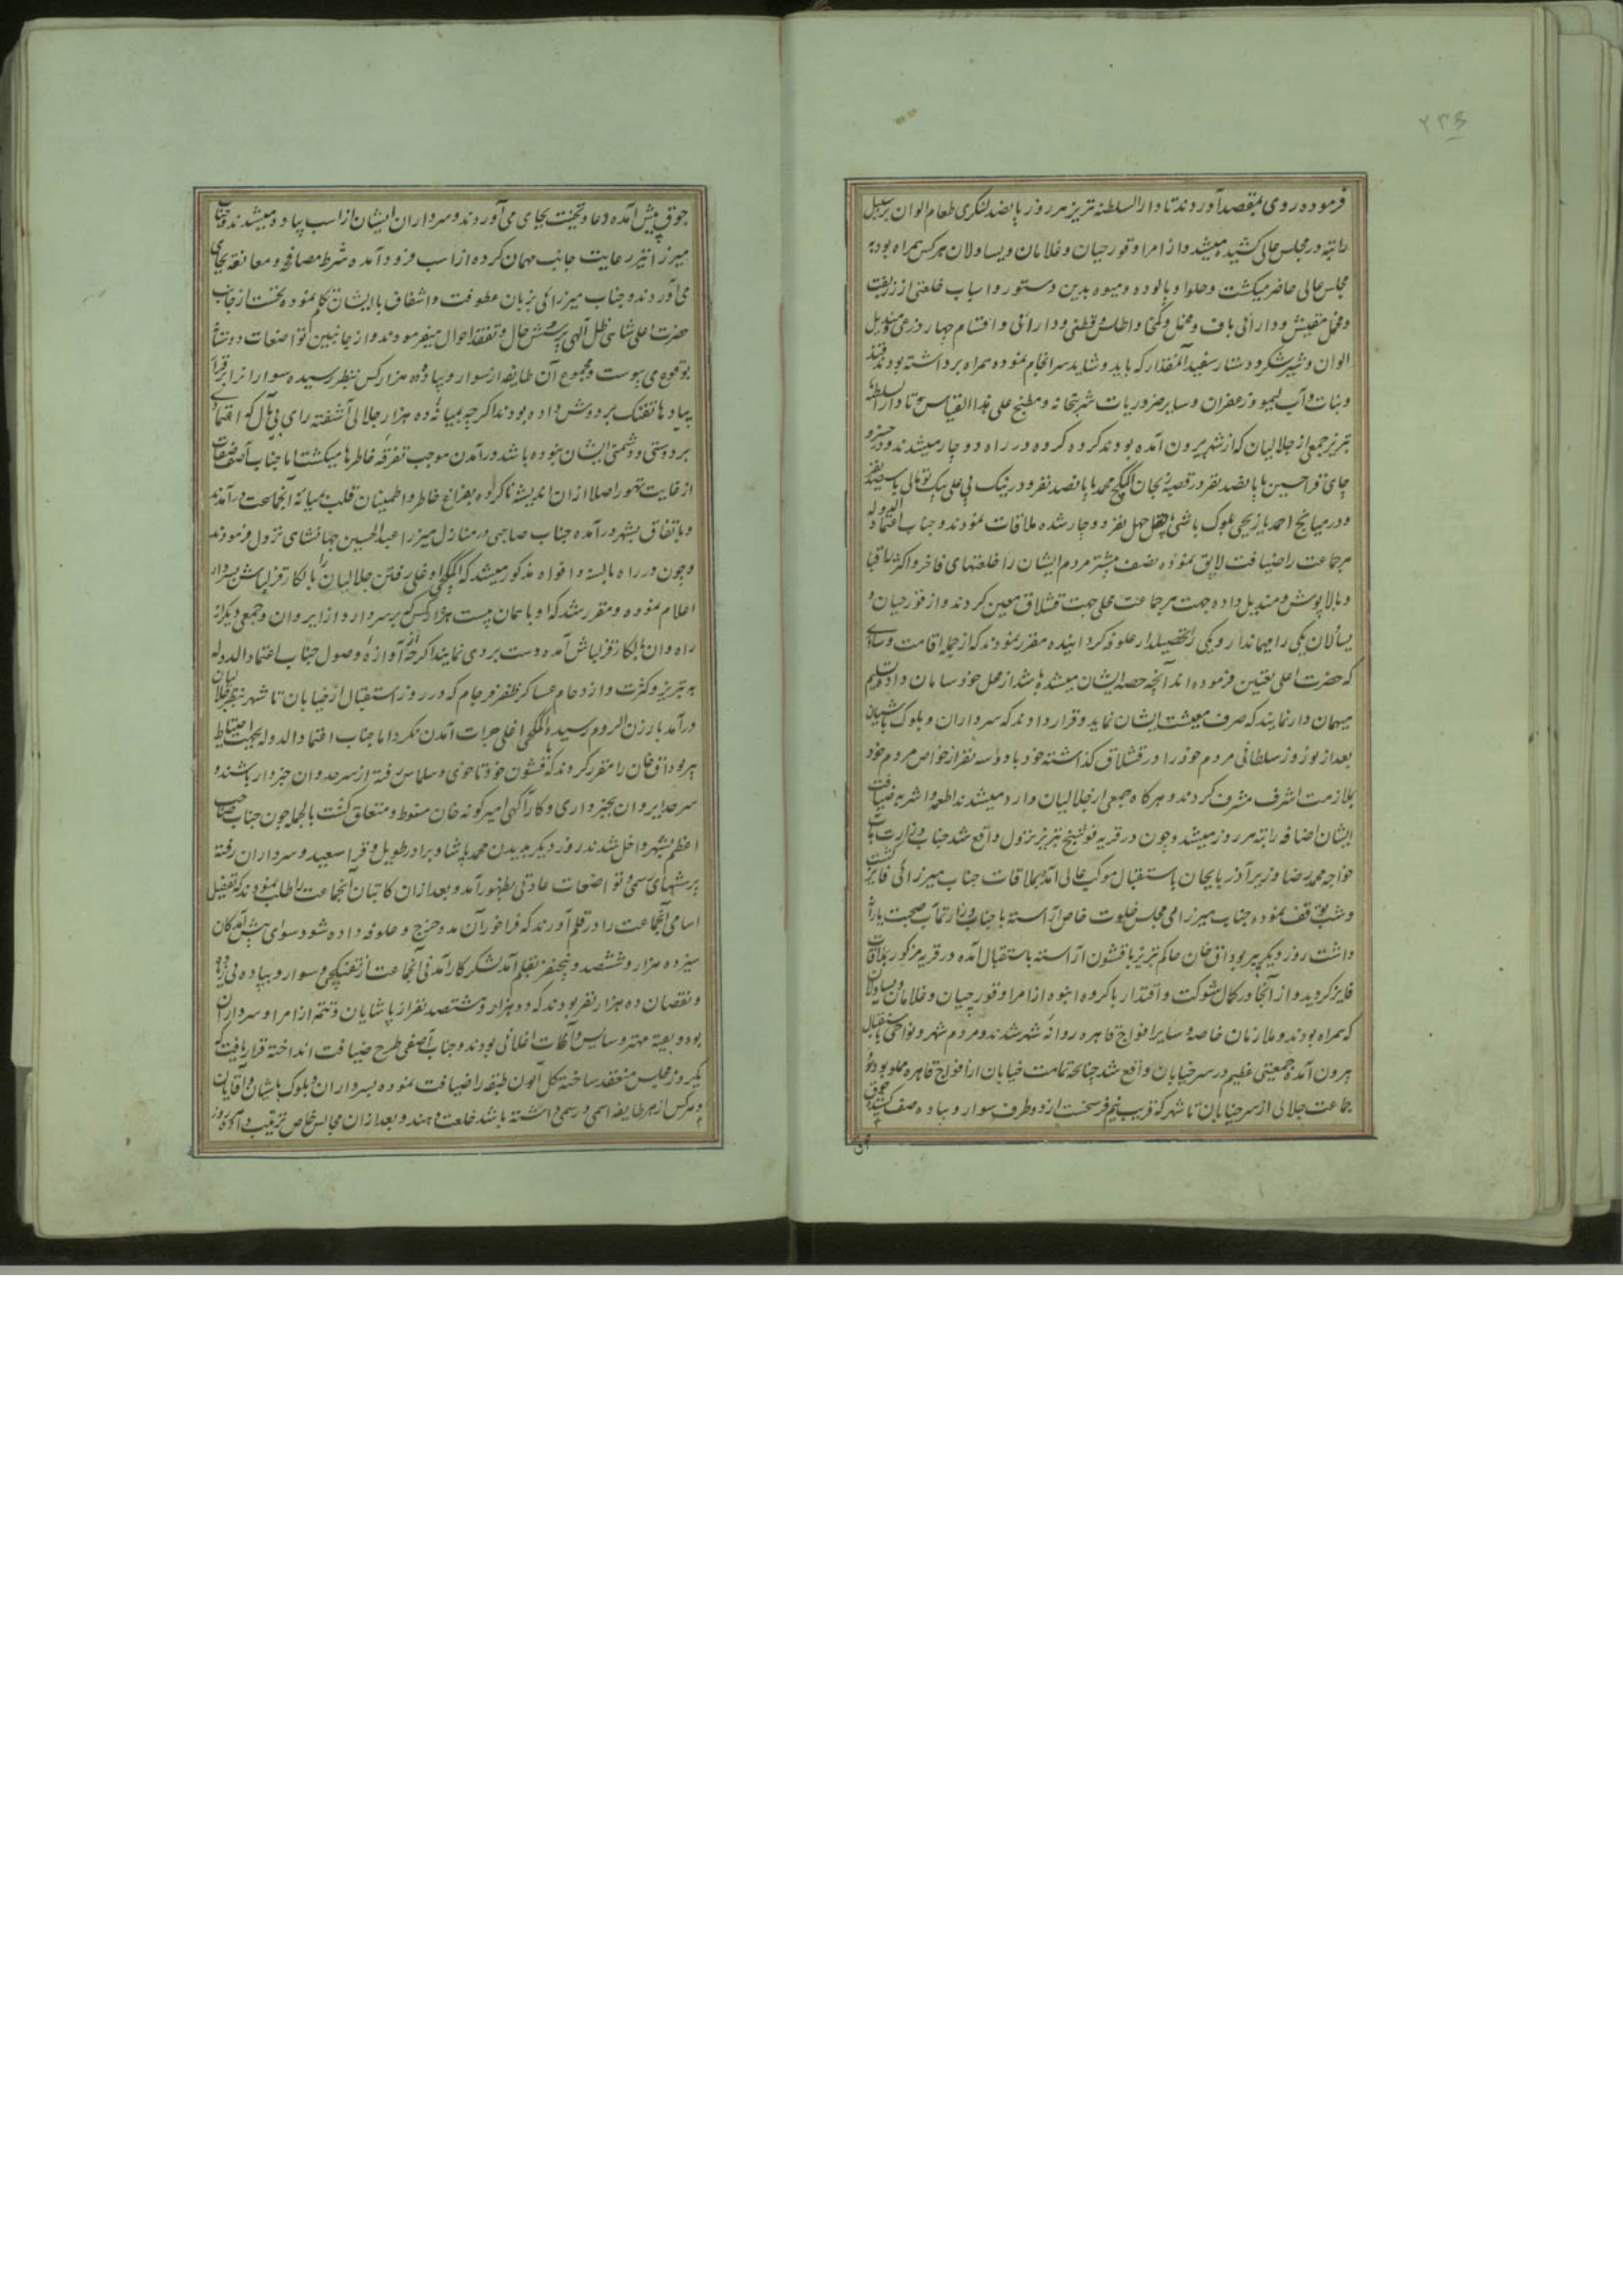 ۲۳۶
فرموده روی بمقصد آوردند تا دار السلطنه تبریز هر روز پانصد لنکری طعام الوان بر سبیل
راتبه در مجلس عالی کشیده میشد و از امرا و قورچیان و غلامان و یساولان هر کس همراه بود به
مجلس عالی حاضر میکشت و حلوا و پالوده و میوه بدین دستور و اسباب خلعتی از زربفت
و مخمل مقیش و دارائی باف و مخمل و کمخا و اطلس و قطنی و دارائی و اقسام چهار ذرعی و مندیل
الوان و شیر شکر و دستار سفید آنمقدار که باید و شاید سرانجام نموده همراه برداشته بودند قند
و نبات و آب لیمو و زعفران و سایر ضروریات شربتخانه و مطبخ علی هذا القیاس و تا دار السلطنه
تبریز جمعی از جلالیان که از شهر بیرون آمده بودند کروه کروه در راه دوچار میشدند و در
جای قراحسین با پانصد نفر در قصبه زنجان محمد با پانصد نفر و در نیک پی علی بیک با سیصد نفر
و در میانج احمد یازیجی بلوک باشی با چهل نفر دوچار شده ملاقات نمودند و جناب اعتماد الدوله
هر جماعت را ضیافت لایق نموده نصف بیشتر مردم ایشان را خلعتهای فاخر و اکثر را قبا
و بالاپوش و مندیل داده جهت هر جماعت محلی جهت قشلاق معین کردند و از قورچیان و
یساولان یکی را مهماندار و یکی را تحصیلدار علوفه کردانیده مقرر نمودند که از جمله اقامت و ساوری
که حضرت اعلی تعیین فرموده اند آنچه حصه ایشان میشده باشد از محل خود سامان داده تسلیم
میهمان دار نمایند که صرف معیشت ایشان نماید و قرار دادند که سرداران و بلوک باشیان
بعد از نوروز سلطانی مردم خود را در قشلاق کذاشته خود با دو سه نفر از خواص مردم خود
بملازمت اشرف مشرف کردند و هر کاه جمعی از جلالیان وارد میشدند اطعمه و اشربه ضیافت
ایشان اضافه راتبه هر روز میشد و چون در قریه تبریز نزول واقع شد جناب وزارت مآب
خواجه محمد رضا وزیر آذربایجان باستقبال موکب عالی آمده بملاقات جناب میرزائی فایز کشت
و شب توقف نموده جناب میرزائی مجلس خلوت خاص آراسته با جناب وزارتمآب صحبت
داشت روز دیکر پیر بوداق خان حاکم تبریز با قشون آراسته باستقبال آمده در قریه مزکور بملاقات
فایز کردید و از آنجا در کمال شوکت و اقتدار با کروه انبوه از امرا و قورچیان و غلامان و یساولان
که همراه بودند و ملازمان خاصه و سایر افواج قاهره روانه شهر شدند و مردم شهر و نواحی باستقبال
بیرون آمده جمعیتی عظیم در سر خیابان واقع شد چنانچه تمامت خیابان از افواج قاهره مملو بود و
جماعت جلالی از سر خیابان تا شهر که قریب نیم فرسخست از دو طرف سوار و پیاده صف کشیده جوق
جوق پیش آمده دعا و تحیت بجای می آوردند و سرداران ایشان از اسب پیاده میشدند و جناب
میرزا نیز رعایت جانب مهمان کرده از اسب فرود آمده شرط مصافحه و معانقه بجای
می آوردند و جناب میرزائی بزبان عطوفت و اشفاق با ایشان تکلم نموده نخست از جانب
حضرت اعلی شاهی ظل آلهی پرسش حال و تفقد احوال میفرمودند و از جانبین تواضعات دوستانه
بوقوع می پیوست و مجموع آن طایفه از سوار و پیاده ده هزار کس بنظر رسیده سوار از ابرقرا
پیادها تفنک بر دوش داده بودند اکرچه بمیانه ده هزار جلالی آشفته رای بی مآل که اعتمادی
بر دوستی و دشمنی ایشان نبوده باشد در آمدن موجب تفرقه خاطرها میکشت اما جناب آصف صفات
از غایت تهور اصلا از ان اندیشه نا کرده بفراغ خاطر و اطمینان قلب بمیانه آنجماعت در آمدند
و باتفاق بشهر در آمده جناب صاحبی در منازل میرزا عبد الحسین جهانشاهی نزول فرمودند
و چون در راه بالسنه و افواه مذکور میشد که اغلی رفتن جلالیان را بالکا قزلباش بسردار
اعلام نموده و مقرر شد که او با سمان بیست هزار کس بر سر دارد از ایروان و جمعی دیکر از
راه وان بالکا قزلباش آمده دست بردی نمایند اکرچه آوازه وصول جناب اعتماد الدوله
به تبریز و کثرت و ازدحام عساکر ظفر فرجام که در روز استقبال از خیابان تا شهر بنظر جلالیان
در آمد بارزن الروم رسیده اغلی جرات آمدن نکرد اما جناب اعتماد الدوله بجهت احتیاط
پیر بوداق خان را مقرر کردند که با قشون خود تا خوی و سلماس رفته از سرحد وان خبردار باشند و
سرحد ایروان بخبرداری و کارآکهی امیر کونه خان منوط و متعلق کشت بالجمله چون جناب صاحب
اعظم بشهر داخل شدند روز دیکر بدیدن محمد پاشا و برادر طویل و قرا سعید و سرداران رفته
پرسشهای رسمی و تواضعات عادتی بظهور آمد و بعد از ان کاتبان آنجماعت را طلب نمودند که تفصیل
اسامی آنجماعت را در قلم آورند که فراخور آن مدد خرج و علوفه داده شود سوای پیش آمدکان
سیزده هزار و ششصد و پنجنفر بقلم آمد لشکر کارآمدنی آنجماعت از تفنکچی و سوار و پیاده بی زیاده
و نقصان ده هزار نفر بودند که دو هزار و ششصد نفر از پاشایان و تتمه از امرا و سرداران
بود و بقیه مهتر و سایس و آغات اغلانی بودند و جناب آصفی طرح ضیافت انداخته قرار یافت که
یکروز مجلس منعقد ساخته کل آلون طبقه را ضیافت نموده بسرداران و بلوک باشیان و آقایان
و هر کس از هر طایفه اسمی و رسمی داشته باشد خلعت دهند و بعد از ان مجالس خاص ترتیب داده هر روز